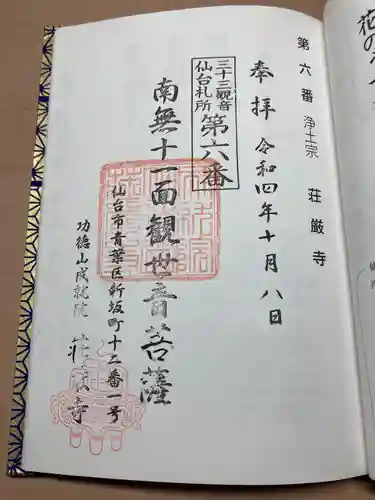 第六番 浄土宗 荘厳寺
奉拝 令和四年十月八日
三十三観音
仙台札所
第六番
南無十一面観世音菩薩
仙台市青葉区新坂町十二番一号
功徳山成就院
荘厳寺